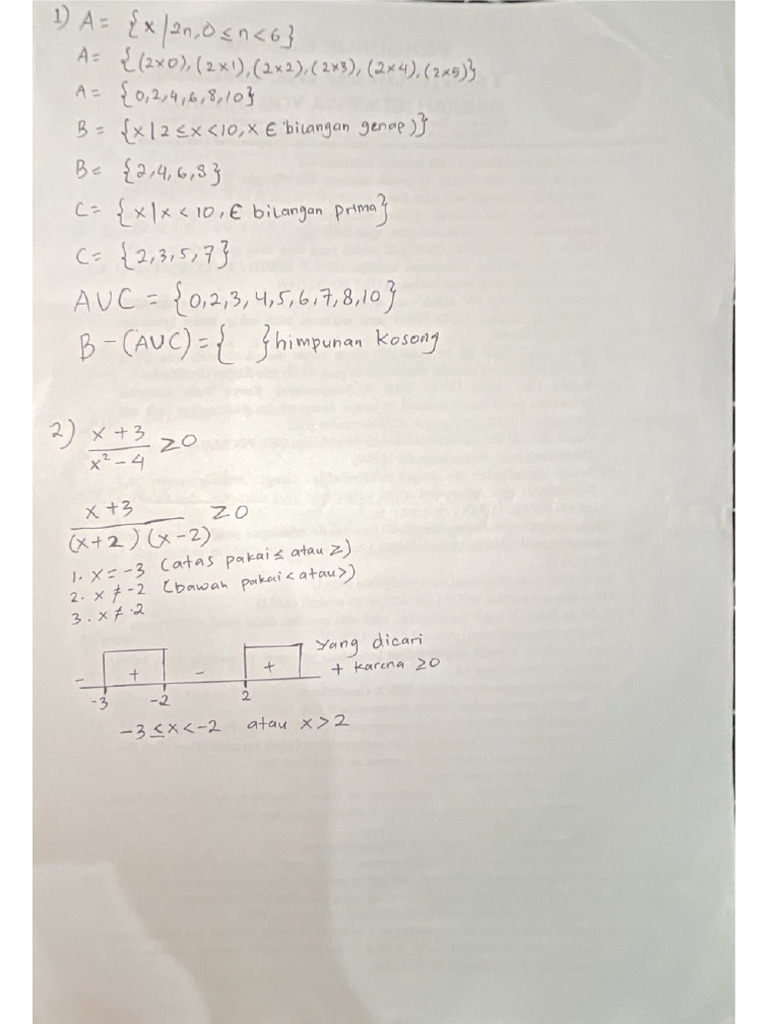 1) A = {x | 2n, 0 ≤ n < 6}
A = {(2x0), (2x1), (2x2), (2x3), (2x4), (2x5)}
A = {0,2,4,6,8,10}
B = {x | 2 ≤ x < 10, x ∈ bilangan genap)}
B = {2,4,6,8}
C = {x | x < 10, ∈ bilangan prima}
C = {2,3,5,7}
AUC = {0,2,3,4,5,6,7,8,10}
B - (AUC) = { } himpunan kosong
2) x + 3 / x² - 4 ≥ 0
x + 3 / (x+2)(x-2) ≥ 0
1. x = -3 (atas pakai ≤ atau ≥)
2. x ≠ -2 (bawah pakai < atau >)
3. x ≠ 2
yang dicari
- + - + + karena ≥0
-3 -2 2
-3 ≤ x < -2 atau x > 2